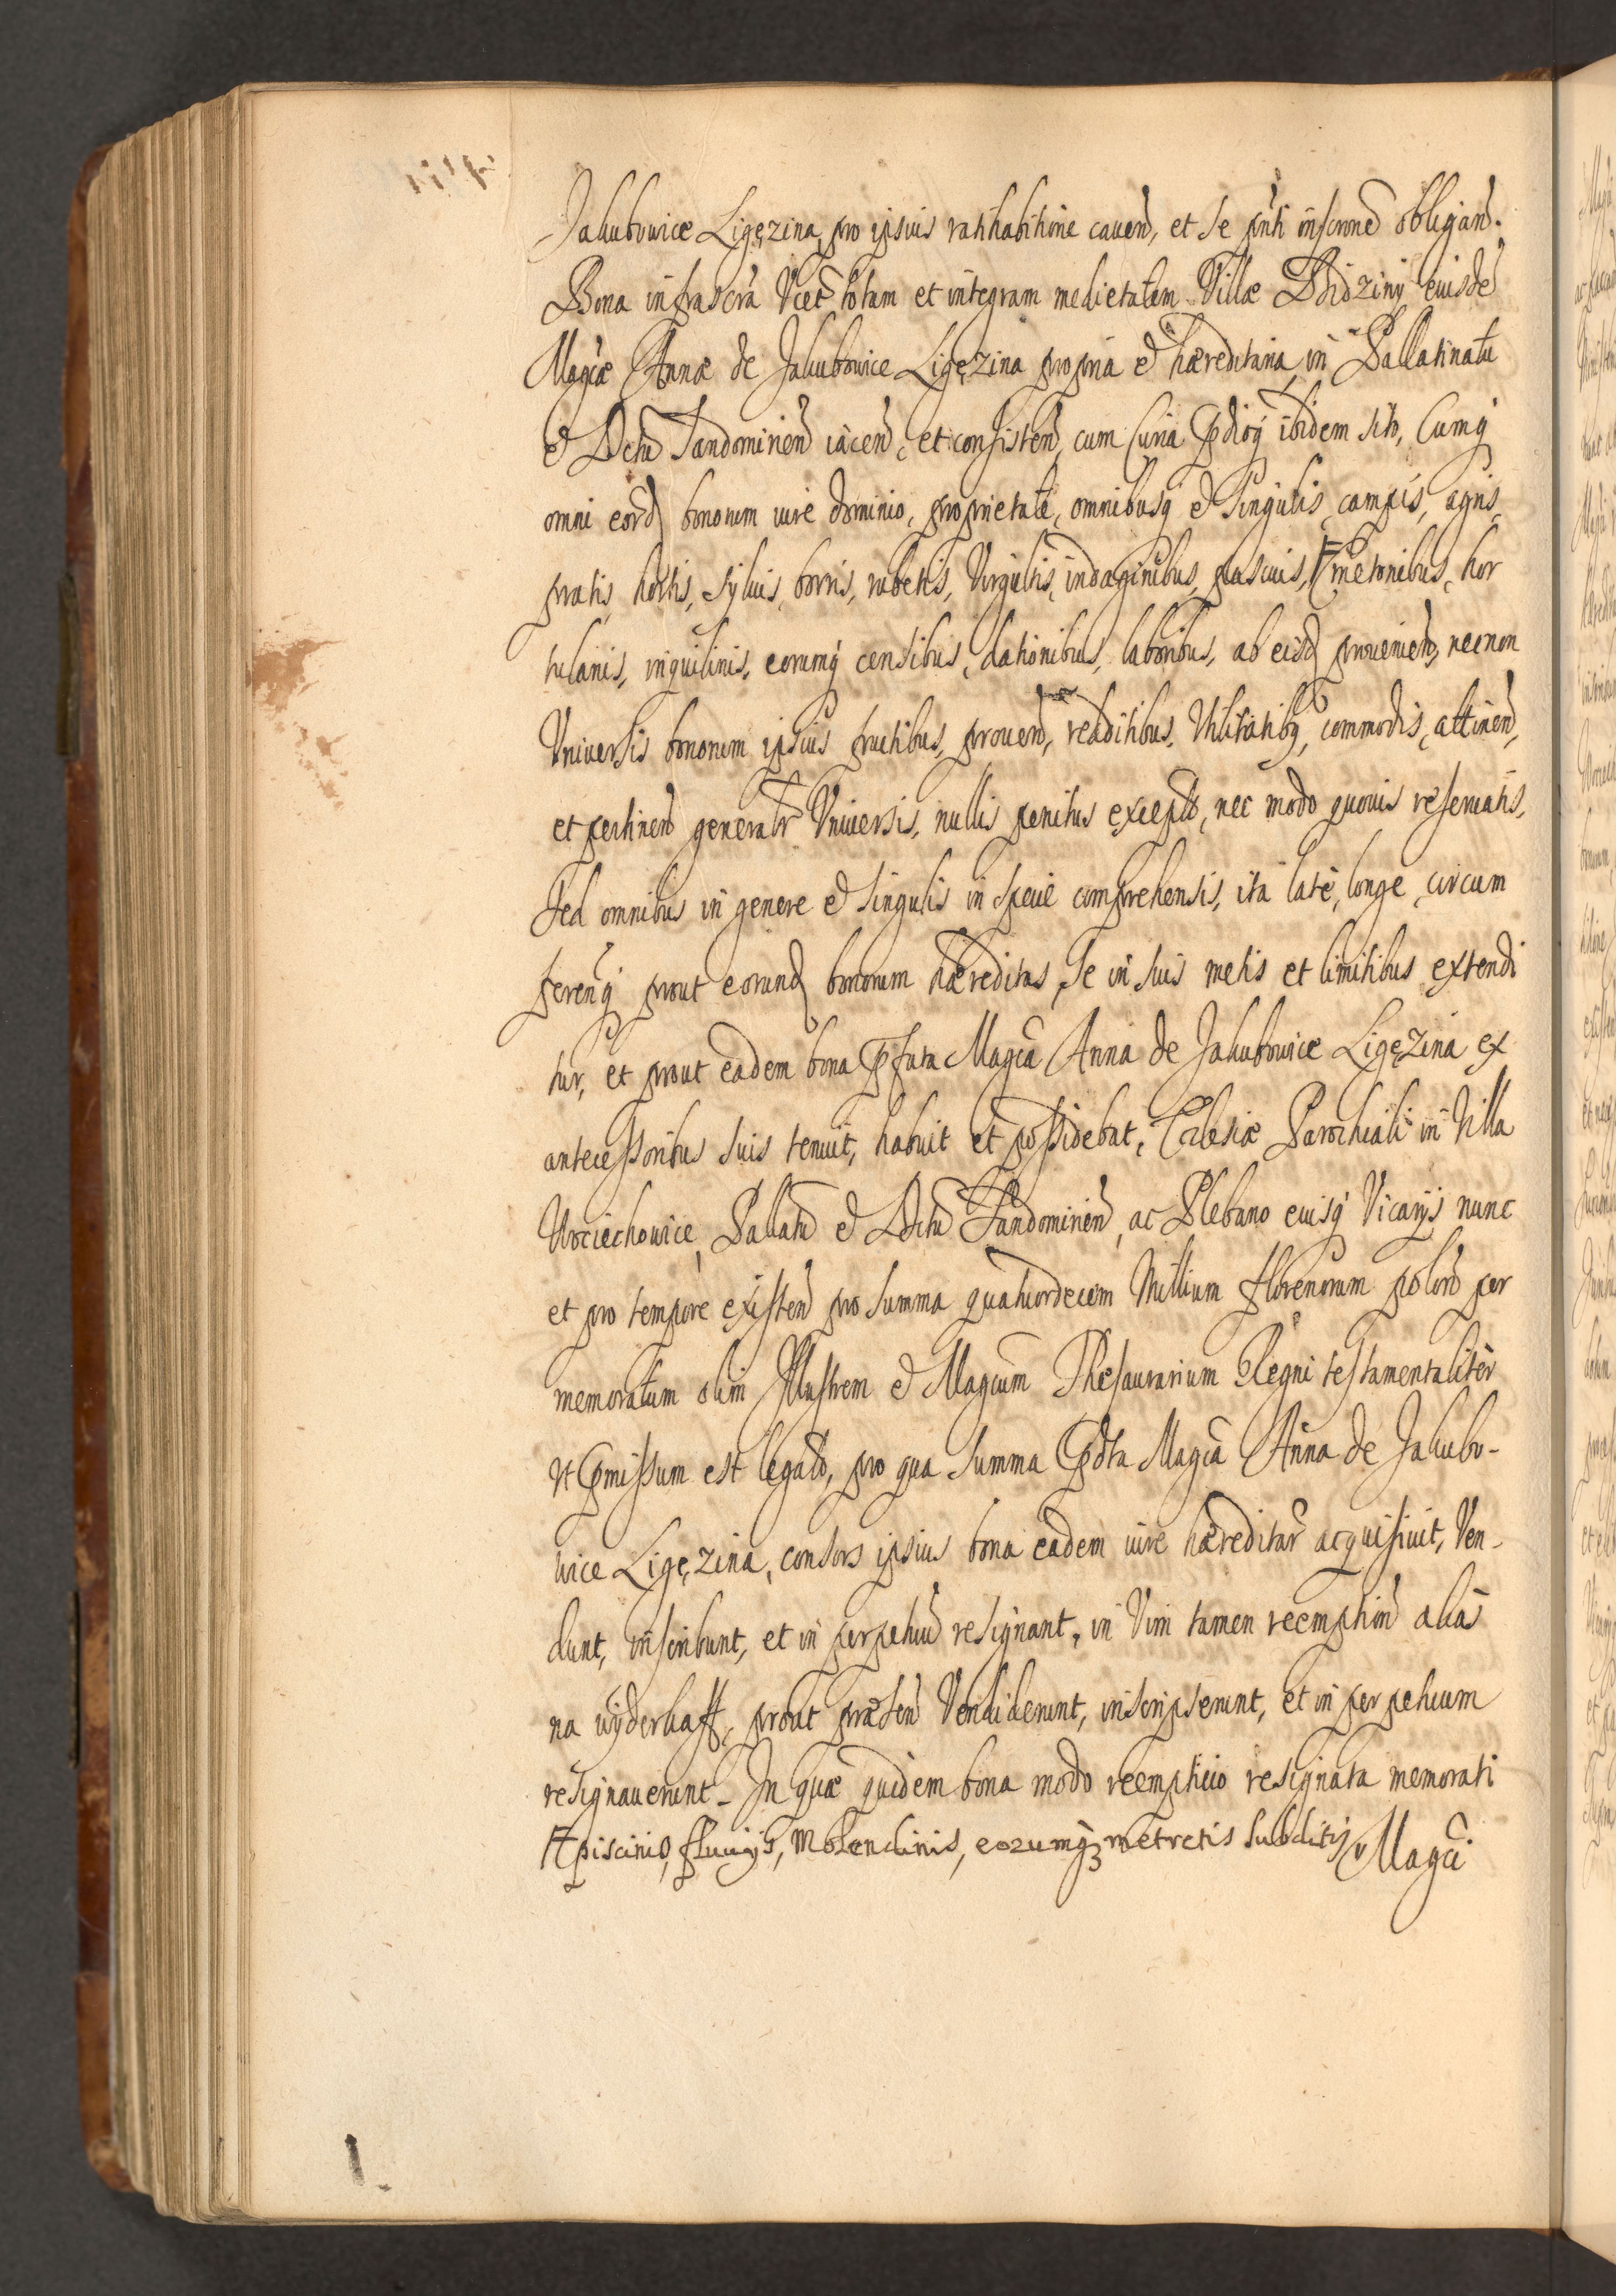 Jakubowice Ligęzina, pro ipsius ratihabitione cauend, et se pnti inscrone obligand.
Bona infrascra Vcet totam et integram medietatem Villæ Bidziny eiusde
Magcæ Annæ de Jakubowice Ligęzina propria & hæreditaria, in Pallatinatu
& Dctu Sandomirien iacen, et consisten, cum Curia Pdioq ibidem sito, Cumq
omni eord bonorum iure dominio, proprietate, omnibusq & singulis campis, agris,
pratis hortis, syluis, borris, rubetis, Virgultis, indaginibus, pascuis, Cmetonibus, hor
tulanis, inquilinis, eorumq censibus, dationibus, laboribus, ab eisd prouenien, necnon
Vniuersis bonorum ipsius fructibus, prouend, redditibus, Vtilitatibq, commodis, attinen,
et pertinen generalr Vniuersis, nullis penitus except, nec modo quouis reseruatis,
Sed omnibus in genere & singulis in specie comprehensis, ita late, longe, circum
ferenq prout eorund bonorum hæreditas, se in suis metis et limitibus extendi
tur, et prout eadem bona Pfata Magca Anna de Jakubowice Ligęzina ex
antecessoribus suis tenuit, habuit et possidebat, Ecclesiæ Parochiali in Villa
Woiciechowice, Pallatu & Dctu Sandomirien, ac Plebano eiusq Vicarijs nunc
et pro tempore existen pro summa quatuordecem Millium florenorum polord per
memoratum olim Illustrem & Magcum Thesaurarium Regni testamentaliter
vt Pmissum est legato, pro qua summa Pdta Magca Anna de Jakubo-
wice Ligęzina, consors ipsius bona eadem iure hæreditar acquisiuit, Ven-
dunt, inscribunt, et in perpetuu resignant, in Vim tamen reemption alias
na wyderkaff, prout præsen Vendiderunt, inscripserunt, et in perpetuum
resignauerunt_ In quæ quidem bona modo reempticio resignata memorati
piscinis, fluuijs, Molendinis, eorumq3 metretis subditis,
Magci